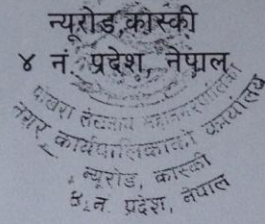 न्यूरोड,कास्की
४ नं. प्रदेश, नेपाल
पोखरा लेखनाथ महानगरपालिका
नगर कार्यपालिकाको कार्यालय
न्यूरोड, कास्की
४ नं. प्रदेश, नेपाल